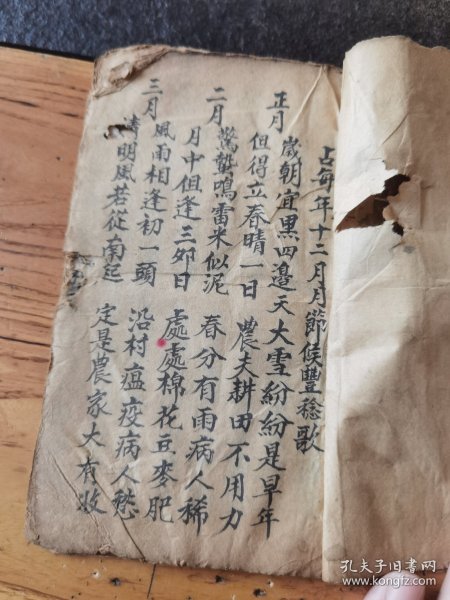 占每年十二月月節候豐稔歌
正月 歲朝宜黑四邊天 大雪紛紛是早年
但得立春晴一日 農夫耕田不用力
二月 驚蟄鳴雷米似泥 春分有雨病人稀
月中但逢三夘日 處處棉花豆麥肥
三月 風雨相逢初一頭 沿村瘟疫病人愁
清明風若從南起 定是農家大有收
孔夫子旧书网
www.kongfz.com